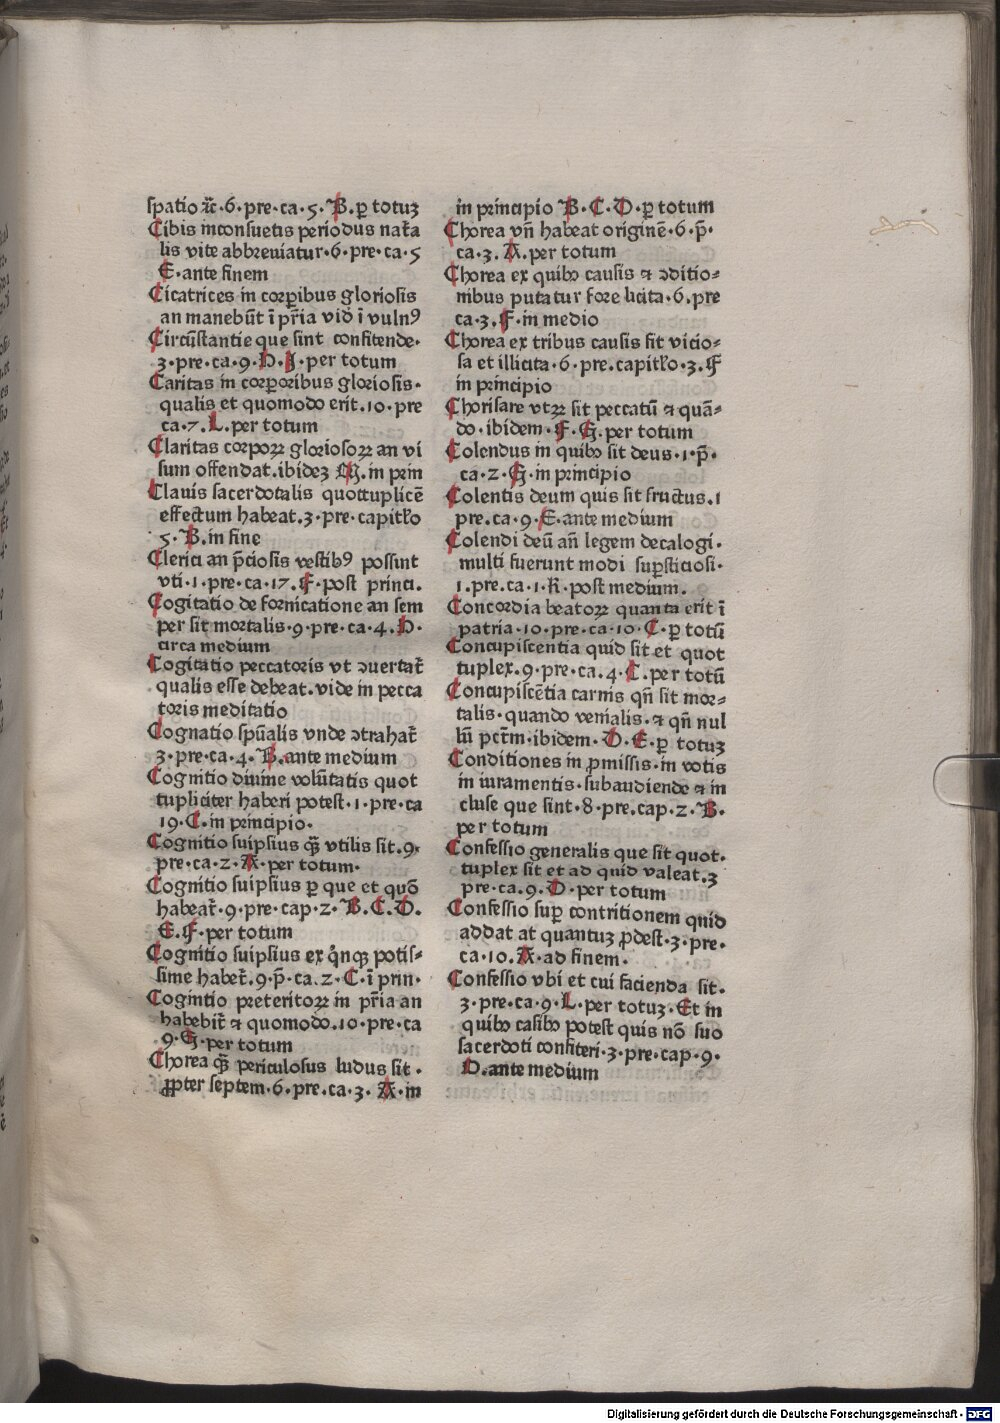 spatio ⁊c̃·6·pre·ca·5·B·ꝑ totuꝫ
Cibis inconsuetis periodus nat̃a
lis vite abbreviatur·6·pre·ca·5
E·ante finem
Cicatrices in corꝑibus gloriosis
an manebūt ī pr̃ia vid̄ ī vulnꝰ
Circūstantie que sint confitende·
3·pre·ca·9·H·I·per totum
Caritas in corporibus gloriosis·
qualis et quomodo erit·10·pre
ca·7·L·per totum
Claritas corpoꝝ gloriosoꝝ an vi
sum offendat·ibideꝫ M·in prin
Clauis sacerdotalis quottuplicē
effectum habeat·3·pre·capitƚo
5·B·in fine
Clerici an p̄ciosis vestibꝰ possint
vti·1·pre·ca·17·F·post princi.
Cogitatio de fornicatione an sem
per sit mortalis·9·pre·ca·4·H·
circa medium
Cogitatio peccatoris vt ꝯuertat̃
qualis esse debeat·vide in pecca
toris meditatio
Cognatio spūalis vnde ꝯtrahat̃
3·pre·ca·4·B·ante medium
Cognitio diuine volūtatis quot
tupliciter haberi potest·1·pre·ca
19·C·in principio·
Cognitio suipsius qꝫ̄ vtilis sit·9·
pre·ca·2·A·per totum·
Cognitio suipsius ꝑ que et quō
habeat̃·9·pre·cap·2·B·C·D·
E·F·per totum
Cognitio suipsius ex qͥnqꝫ potis⸗
sime habet̃·9·p̄·ca·2·C·ī prin·
Cognitio preteritoꝝ in pr̃ia an
habebit̃ ⁊ quomodo·10·pre·ca
9·G·per totum
Chorea qꝫ̄ periculosus ludus sit·
ꝓpter septem·6·pre·ca·3·A·in
in principio B·C·D·ꝑ totum
Chorea vn̄ habeat originē·6·p̄·
ca·3·A·per totum
Chorea ex quibꝰ causis ⁊ ꝯditio⸗
nibus putatur fore licita·6·pre
ca·3·F·in medio
Chorea ex tribus causis sit vicio⸗
sa et illicita·6·pre·capitƚo·3·F
in principio
Chorisare vtꝝ sit peccatū ⁊ quā⸗
do·ibidem·F·G·per totum
Colendus in quibꝰ sit deus·1·p̄·
ca·2·G·in principio
Colentis deum quis sit fructus·1
pre·ca·9·E·ante medium
Colendi deū an̄ legem decalogi·
multi fuerunt modi suꝑsticiosi·
1·pre·ca·1·K·post medium·
Concordia beatoꝝ quanta erit ī
patria·10·pre·ca·10·C·ꝑ totū
Concupiscentia quid sit et quot
tuplex·9·pre·ca·4·C·per totū
Concupiscētia carnis qn̄ sit mor⸗
talis·quando venialis·⁊ qn̄ nul
lū pctm̄·ibidem·D·E·ꝑ totuꝫ
Conditiones in ꝓmissis·in votis
in iuramentis·subaudiende ⁊ in
cluse que sint·8·pre·cap·2·B·
per totum
Confessio generalis que sit quot·
tuplex sit et ad quid valeat·3
pre·ca·9·D·per totum
Confessio suꝑ contritionem quid
addat at quantuꝫ ꝓdest·3·pre·
ca·10·A·ad finem·
Confessio vbi et cui facienda sit·
3·pre·ca·9·L·per totuꝫ·Et in
quibꝰ casibꝰ potest quis nō suo
sacerdoti confiteri·3·pre·cap·9·
D·ante medium
Digitalisierung gefördert durch die Deutsche Forschungsgemeinschaft - DFG